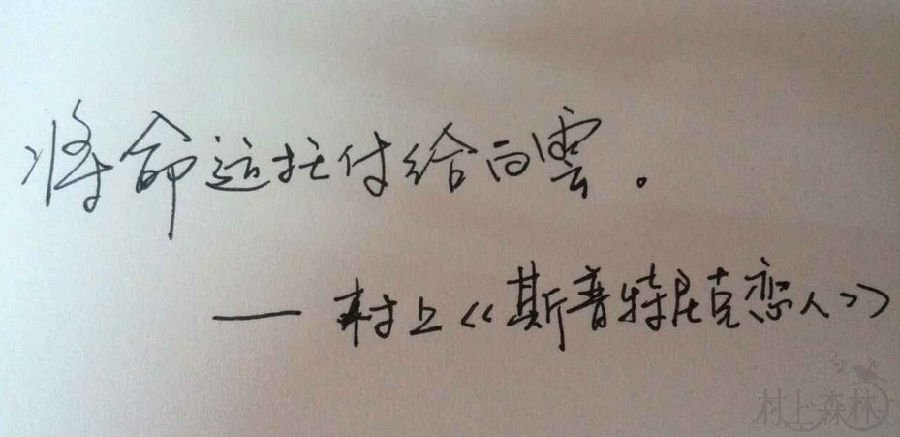 将命运托付给白雲。
—— 村上《斯普特尼克恋人》
村上森林